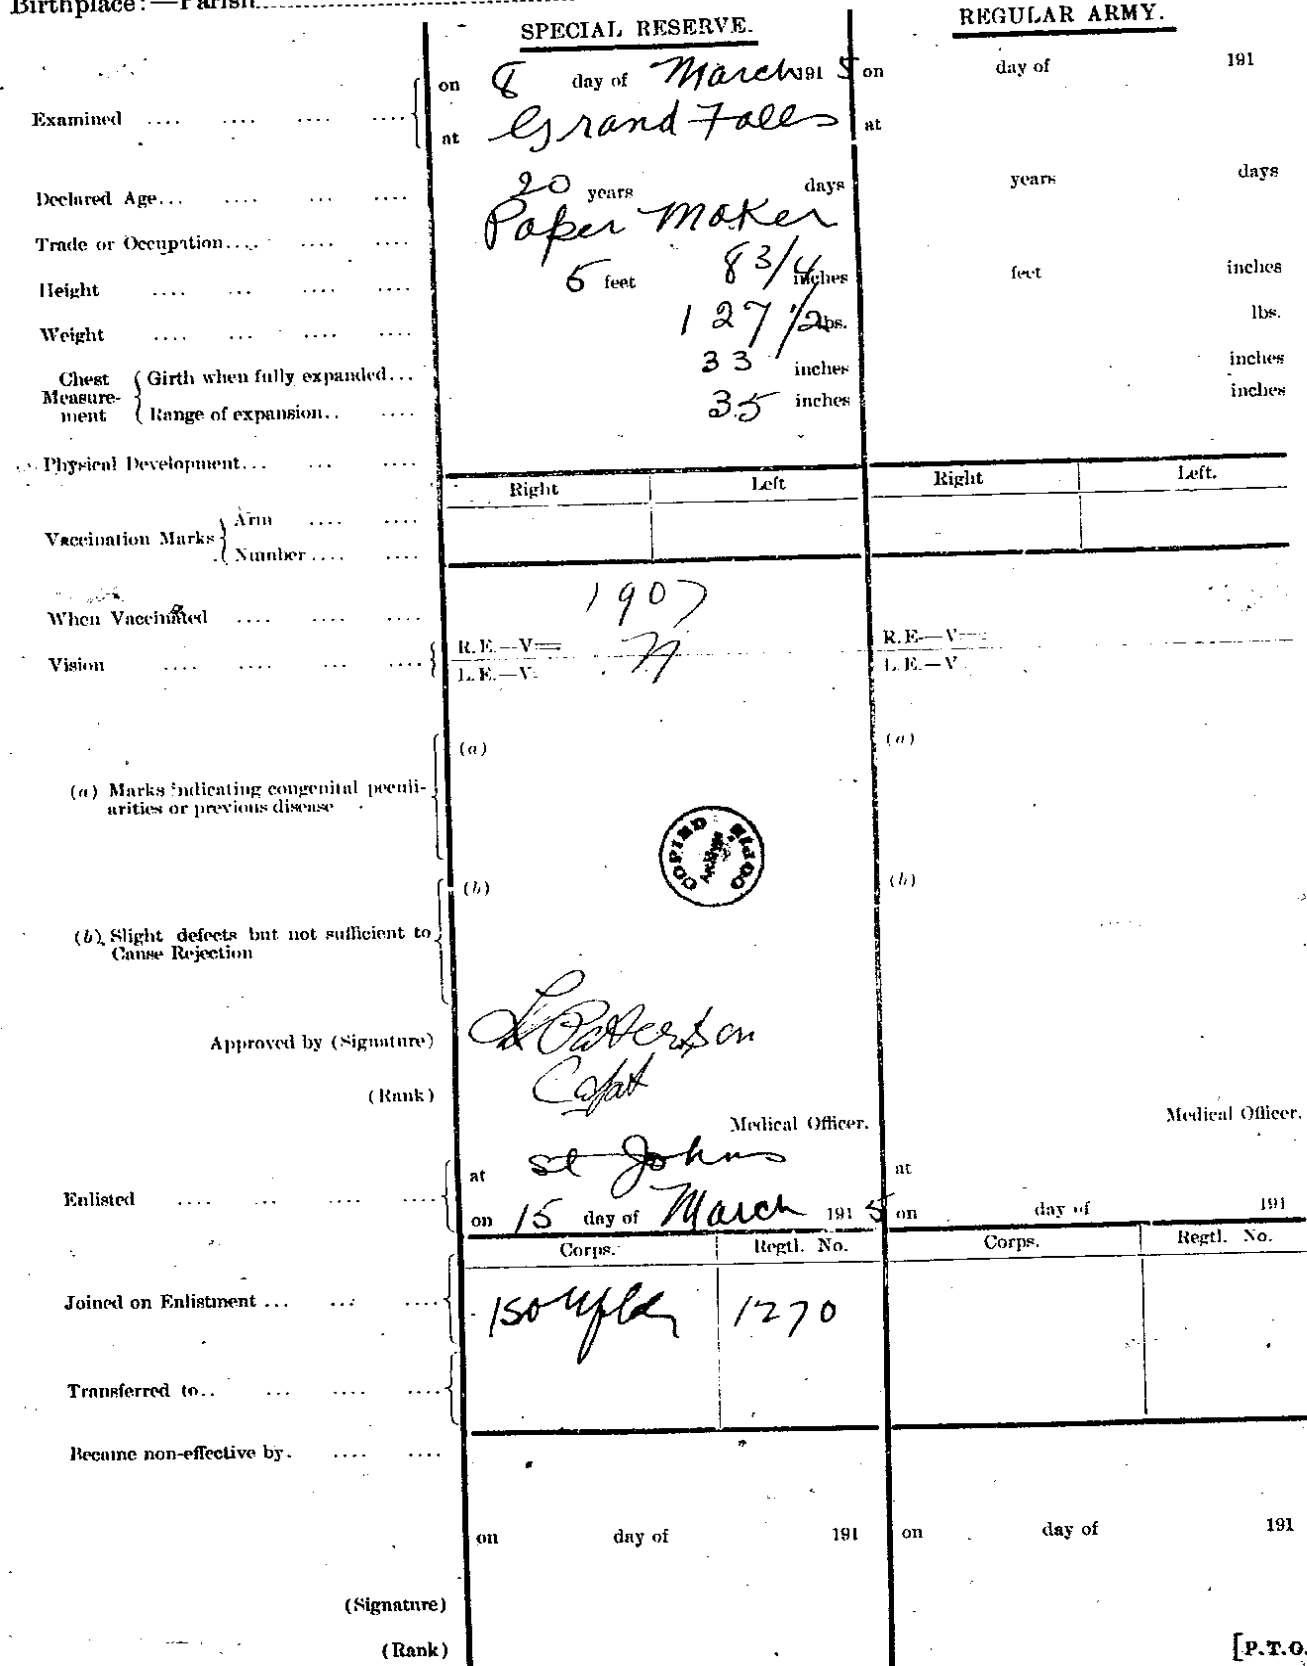 Birthplace:—Parish
SPECIAL RESERVE. REGULAR ARMY.
on 8 day of March 191 5 on day of 191
Examined .... .... .... ....
at Grand Falls at
Declared Age... .... ... .... 20 years days years days
Trade or Occupation.... .... .... Paper Maker
Height .... ... .... .... 5 feet 8 3/4 inches feet inches
Weight .... ... .... .... 127 1/2 lbs. lbs.
Chest Measure-ment { Girth when fully expanded... 33 inches inches
Range of expansion.. .... 35 inches inches
Physical Development... ... ....
Right Left Right Left.
Vaccination Marks { Arm .... ....
Number.... ....
When Vaccinated .... .... .... 1907
Vision .... .... .... .... R.E.—V= R.E.—V=
L.E.—V= L.E.—V
(a) (a)
(a) Marks indicating congenital peculi-
arities or previous disease
COPIED COPIED
(b) (b)
(b) Slight defects but not sufficient to
Cause Rejection
Approved by (Signature) Patterson
(Rank) Capt
Medical Officer. Medical Officer.
at St Johns at
Enlisted .... ... .... ....
on 15 day of March 191 5 on day of 191
Corps. Regtl. No. Corps. Regtl. No.
Joined on Enlistment ... ... .... 1270
Transferred to.. ... .... ....
Became non-effective by. .... ....
on day of 191 on day of 191
(Signature)
(Rank)
[P.T.O.